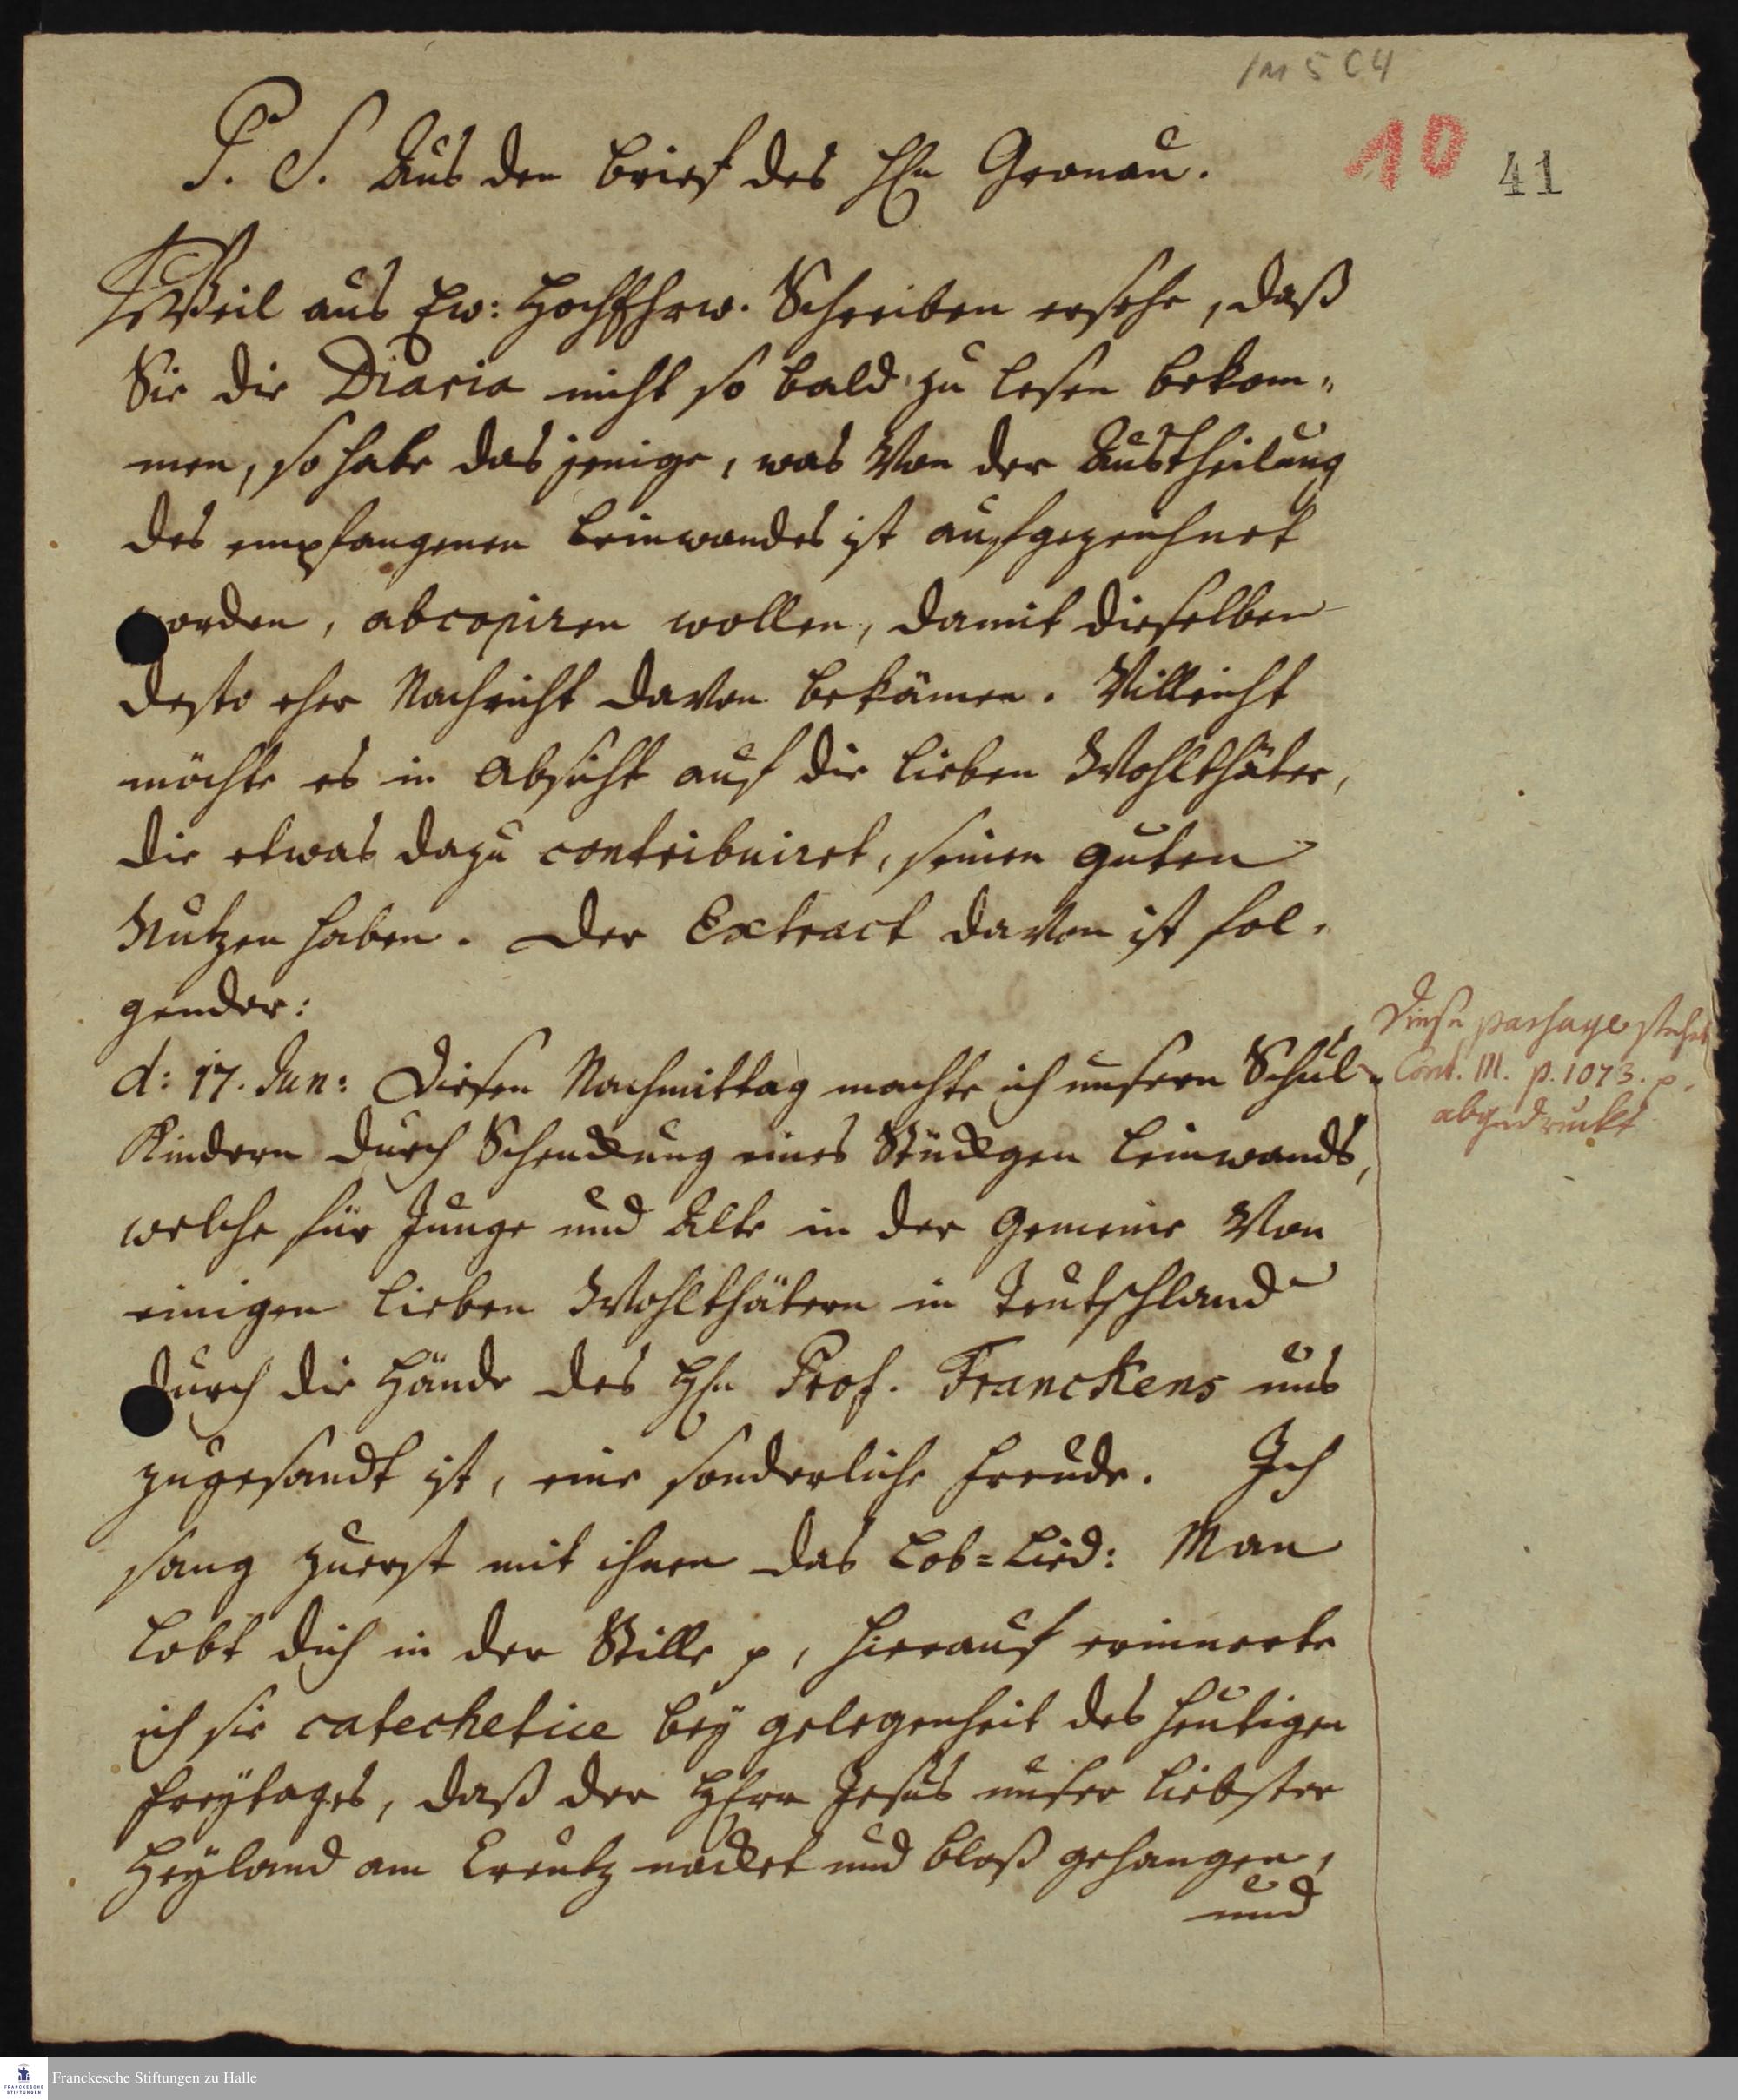 1M 5 C4
10
41
P. S. Aus den brief des HEn Gronau.
Weil aus Ew: HochEhrw. Schreiben ersehe, daß
Sie die Diaria nicht so bald zu lesen bekom„
men, so habe das jenige, was Von der Austheilung
des empfangenen Leinwandes ist aufgezeichnet
worden, abcopiren wollen, damit dieselben
desto eher Nachricht davon bekämen. Villeicht
möchte es in Absicht auf die lieben Wohlthäter,
die etwas dazu contribuiret, seinen guten
Nutzen haben. Der Extract davon ist fol„
gender:
d: 17. Jun: Diesen Nachmittag machte ich unsern Schul„
Kindern durch Schenckung eines Stückgen Leinwands,
welche für Junge und Alte in der Gemeine Von
einigen lieben Wohlthätern in Teutschland
durch die Hände des HEn Prof. Franckens uns
zugesandt ist, eine sonderliche Freude. Ich
sang zuerst mit ihnen das Lob=Lied: Man
lobt dich in der Stille p, hierauf erinnerte
ich sie catechetice bey gelegenheit des heutigen
Freytages, daß der HErr Jesus unser liebster
Heyland am Creutz nacket und bloß gehangen,
und
Diese passage stehet
Cont. III. p. 1073. p.
abgedruckt
Franckesche Stiftungen zu Halle